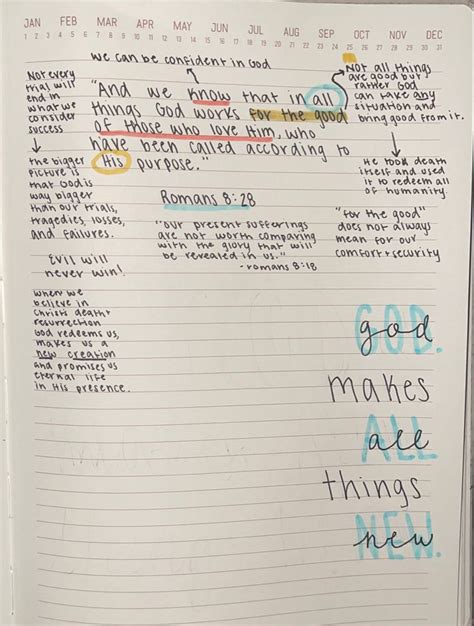 JAN FEB MAR APR MAY JUN JUL AUG SEP OCT NOV DEC
1 2 3 4 5 6 7 8 9 10 11 12 13 14 15 16 17 18 19 20 21 22 23 24 25 26 27 28 29 30 31
we can be confident in God
Not every
trial will
end in
what we
consider
success
the bigger
picture is
that God is
way bigger
than our trials,
tragedies, losses,
and failures.
Evil will
never win!
when we
believe in
Christs death +
resurrection
God redeems us,
makes us a
new creation
and promises us
eternal life
in His presence.
"And we know that in all
things God works for the good
of those who love Him, who
have been called according to
His purpose."
Romans 8:28
"our present sufferings
are not worth comparing
with the glory that will
be revealed in us."
-romans 8:18
Not all things
are good but
rather God
can take any
situation and
bring good from it.
He took death
itself and used
it to redeem all
of humanity.
"for the good"
does not always
mean for our
comfort + security
GOD.
god
makes
ALL
all
things
NEW.
new